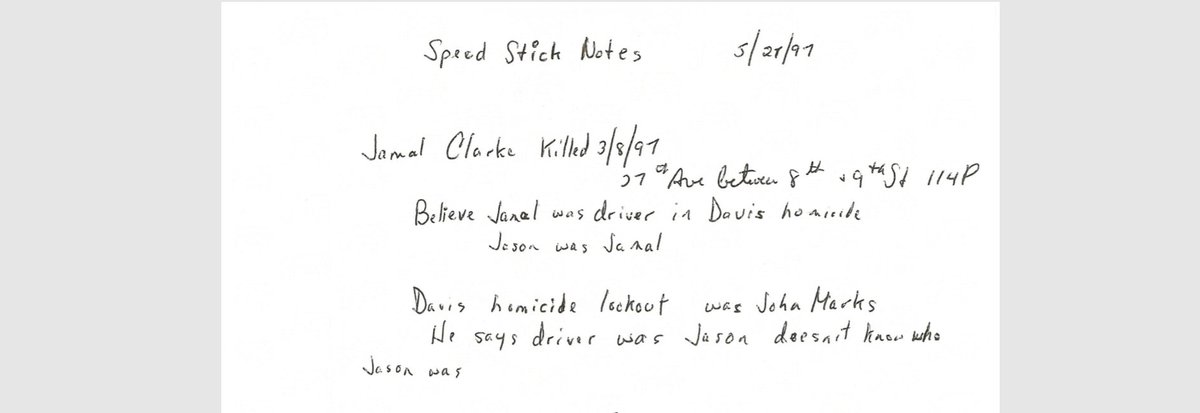 Speed Stick Notes 5/28/97
Jamal Clarke Killed 3/8/97
27th Ave between 8th + 9th St 114P
Believe Jamal was driver in Davis homicide
Jason was Jamal
Davis homicide lookout was John Marks
He says driver was Jason doesn't know who
Jason was